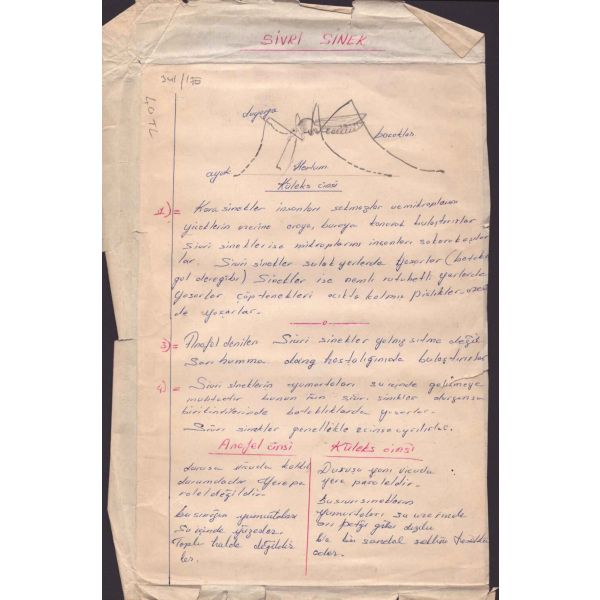 SİVRİ SİNEK
duyarga
bacaklar
ayak
Hortum
Küleks cinsi
2) = Kara sinekler insanları sokmazlar ve mikropların
yiceklerin üzerine oraya, buraya konarak bulaştırırlar
Sivri sinekler ise mikropların insanları sokarak aşılar
lar. Sivri sinekler sulak yerlerde Yaşarlar (batak
göl dere gibi) Sinekler ise nemli rutubetli yerlerde
yaşarlar çöp tenekeleri açıkta kalmış pislikler
de yaşarlar.
3) = Anofel denilen Sivri sinekler yalnız sıtma değil
Sarı humma dang hastalığında bulaştırırlar
4) = Sivri sineklerin yumurtaları su içinde gelişmeye
muhtactır bunun için sivri sinekler durgunsu
birikintilerinde bataklıklarda yaşarlar.
Sivri sinekler genellikle 2 cinse ayrılırlar.
Anofel cinsi
duruşu vicudu kalkık
durumdadır Yere pa
relel değildir.
bu sineğin yumurtaları
Su içinde yüzerler.
Toplu halde değildir
ler.
Küleks cinsi
Duruşu yani vicudu
yere paraleldir.
bu sivri sineklerin
yumurtaları su üzerinde
arı peteği gibi dizili
ve bir sandal şeklini
eder.